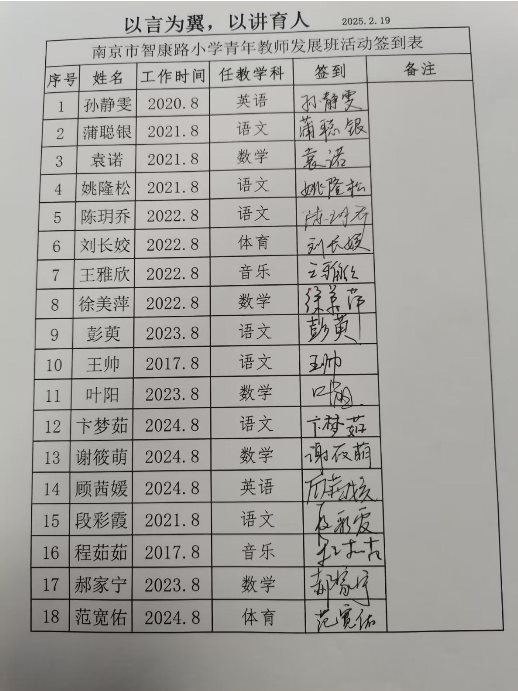 以言为翼，以讲育人 2025.2.19
南京市智康路小学青年教师发展班活动签到表
序号 姓名 工作时间 任教学科 签到 备注
1 孙静雯 2020.8 英语 孙静雯
2 蒲聪银 2021.8 语文 蒲聪银
3 袁诺 2021.8 数学 袁诺
4 姚隆松 2021.8 语文 姚隆松
5 陈玥乔 2022.8 语文 陈玥乔
6 刘长姣 2022.8 体育 刘长姣
7 王雅欣 2022.8 音乐 王雅欣
8 徐美萍 2022.8 数学 徐美萍
9 彭萸 2023.8 语文 彭萸
10 王帅 2017.8 语文 王帅
11 叶阳 2023.8 数学 叶阳
12 卞梦茹 2024.8 语文 卞梦茹
13 谢筱萌 2024.8 数学 谢筱萌
14 顾茜媛 2024.8 英语 顾茜媛
15 段彩霞 2021.8 语文 段彩霞
16 程茹茹 2017.8 音乐
17 郝家宁 2023.8 数学 郝家宁
18 范宽佑 2024.8 体育 范宽佑